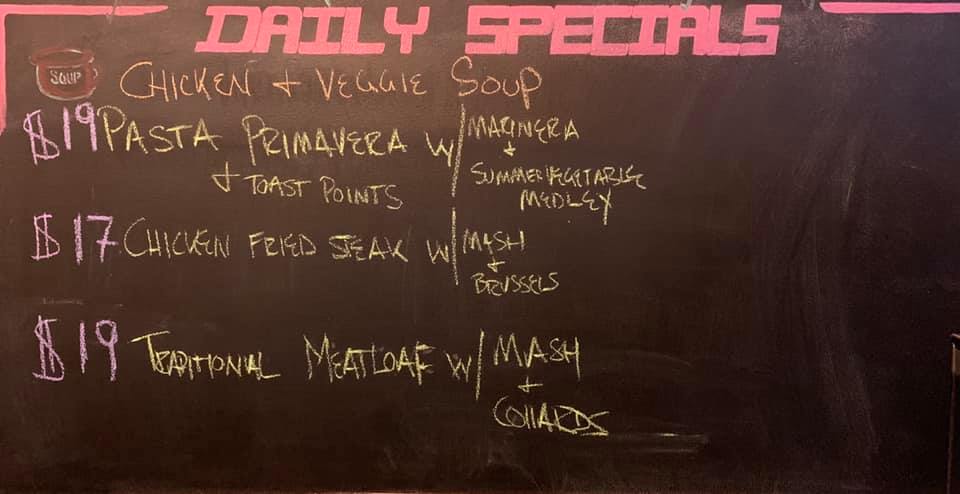 DAILY SPECIALS
SOUP
CHICKEN + VEGGIE SOUP
$19 PASTA PRIMAVERA W/ MARINERA
+ TOAST POINTS + SUMMER VEGETABLE
MEDLEY
$17 CHICKEN FRIED STEAK W/ MASH
+
BRUSSELS
$19 TRADITIONAL MEATLOAF W/ MASH
+
COLLARDS